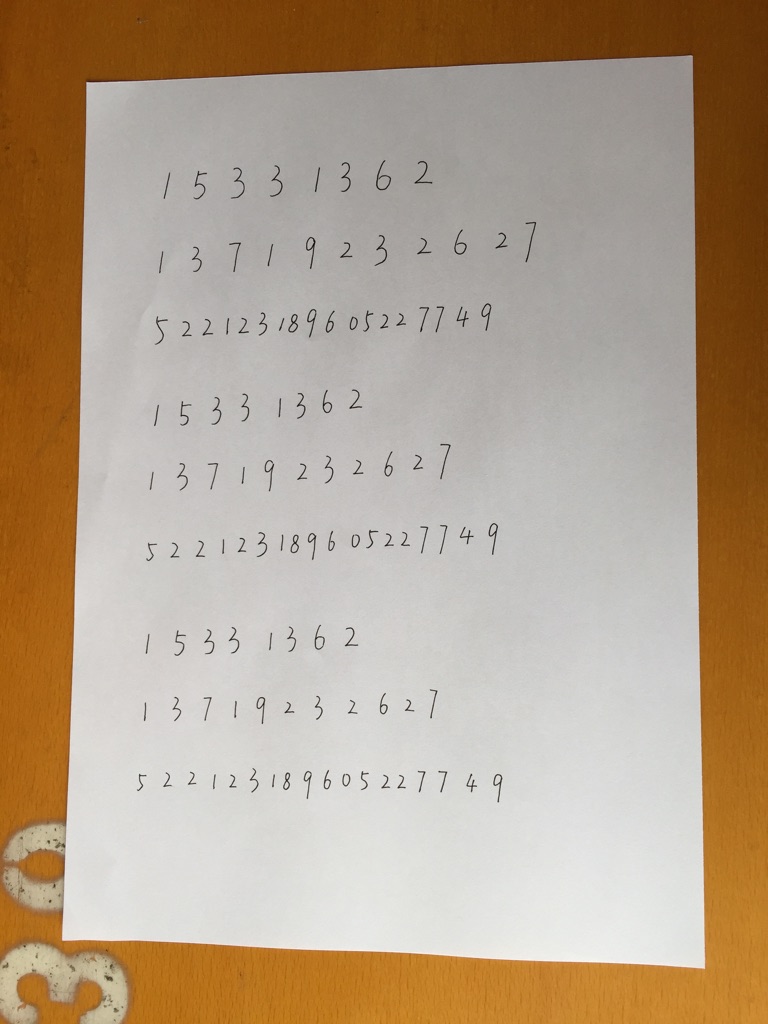 1 5 3 3 1 3 6 2
1 3 7 1 9 2 3 2 6 2 7
5 2 2 1 2 3 1 8 9 6 0 5 2 2 7 7 4 9
1 5 3 3 1 3 6 2
1 3 7 1 9 2 3 2 6 2 7
5 2 2 1 2 3 1 8 9 6 0 5 2 2 7 7 4 9
1 5 3 3 1 3 6 2
1 3 7 1 9 2 3 2 6 2 7
5 2 2 1 2 3 1 8 9 6 0 5 2 2 7 7 4 9
30